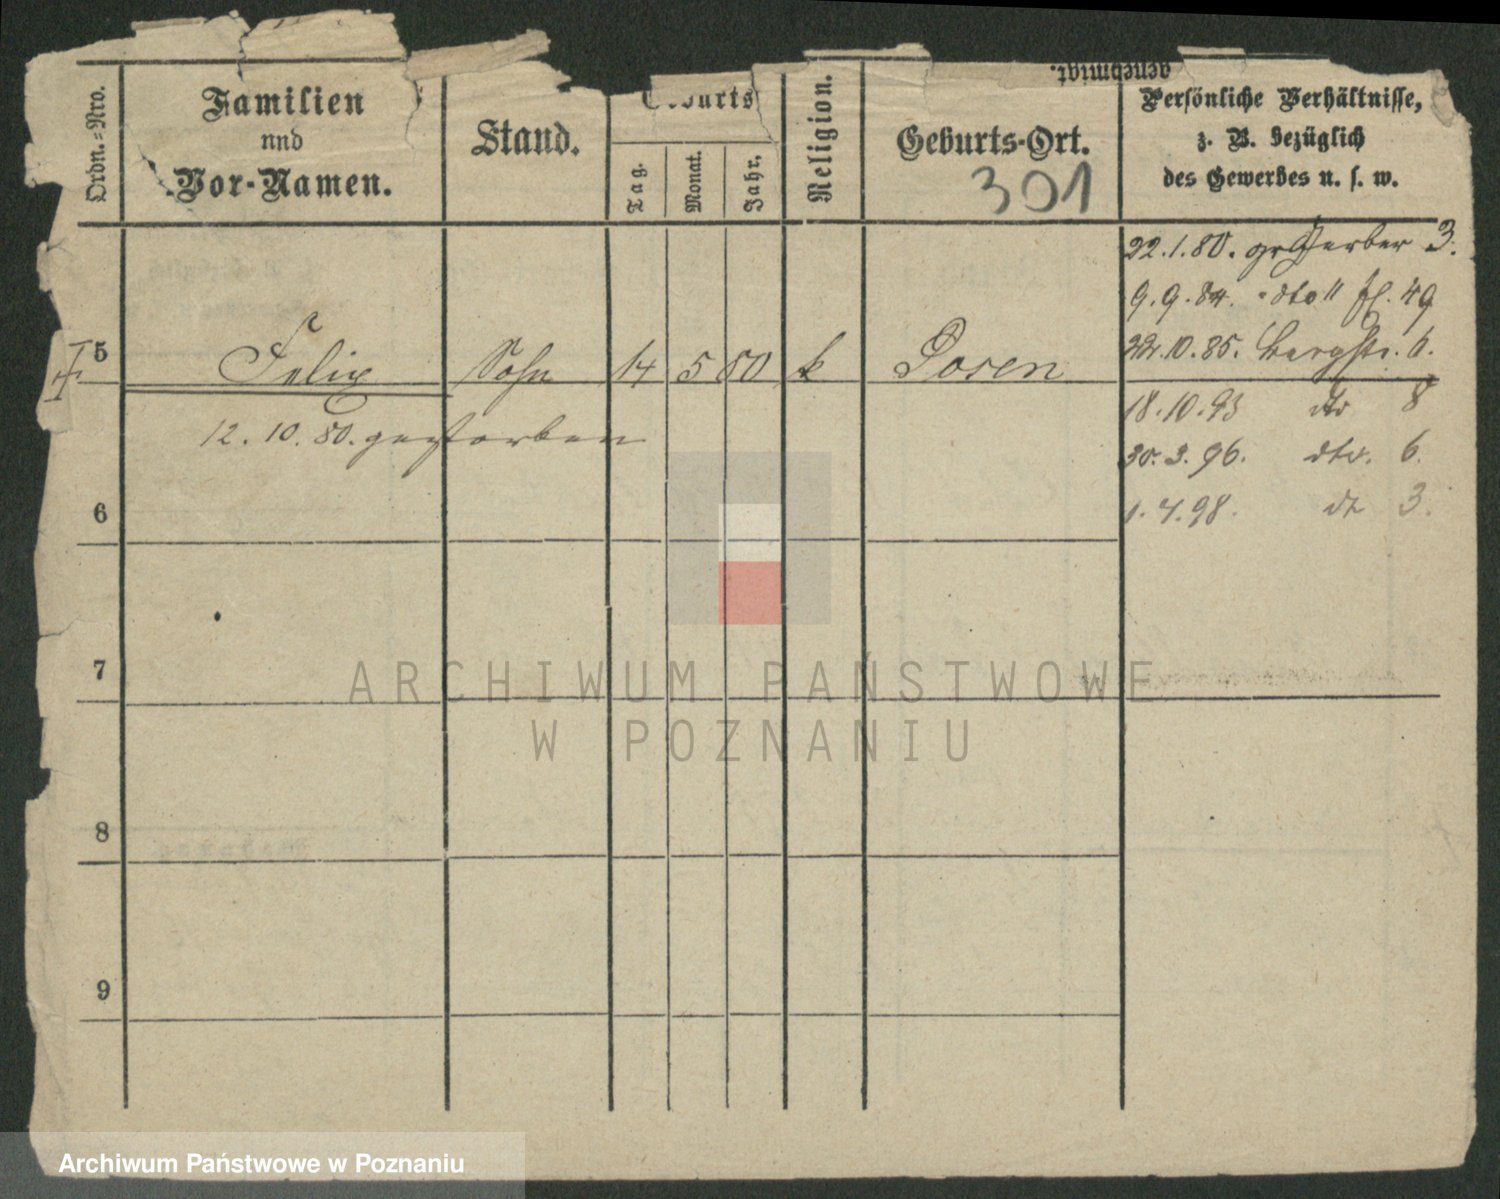 genehmigt.
Ordn.-Nro.
Familien
und
Vor-Namen.
Stand.
Geburts
Tag.
Monat.
Jahr.
Religion.
Geburts-Ort.
301
Persönliche Verhältnisse,
z. B. bezüglich
des Gewerbes u. s. w.
22.1.80. gr Gerber 3.
9.9.84. dto " fl. 49
22.10.85. Bergstr. 6.
5 Felix Sohn 14 5 80 k Posen
18.10.93 dto 8
12.10.80. gestorben
30.3.96. dto. 6.
6
1.4.98. dt 3.
7
ARCHIWUM PAŃSTWOWE
W POZNANIU
8
9
Archiwum Państwowe w Poznaniu